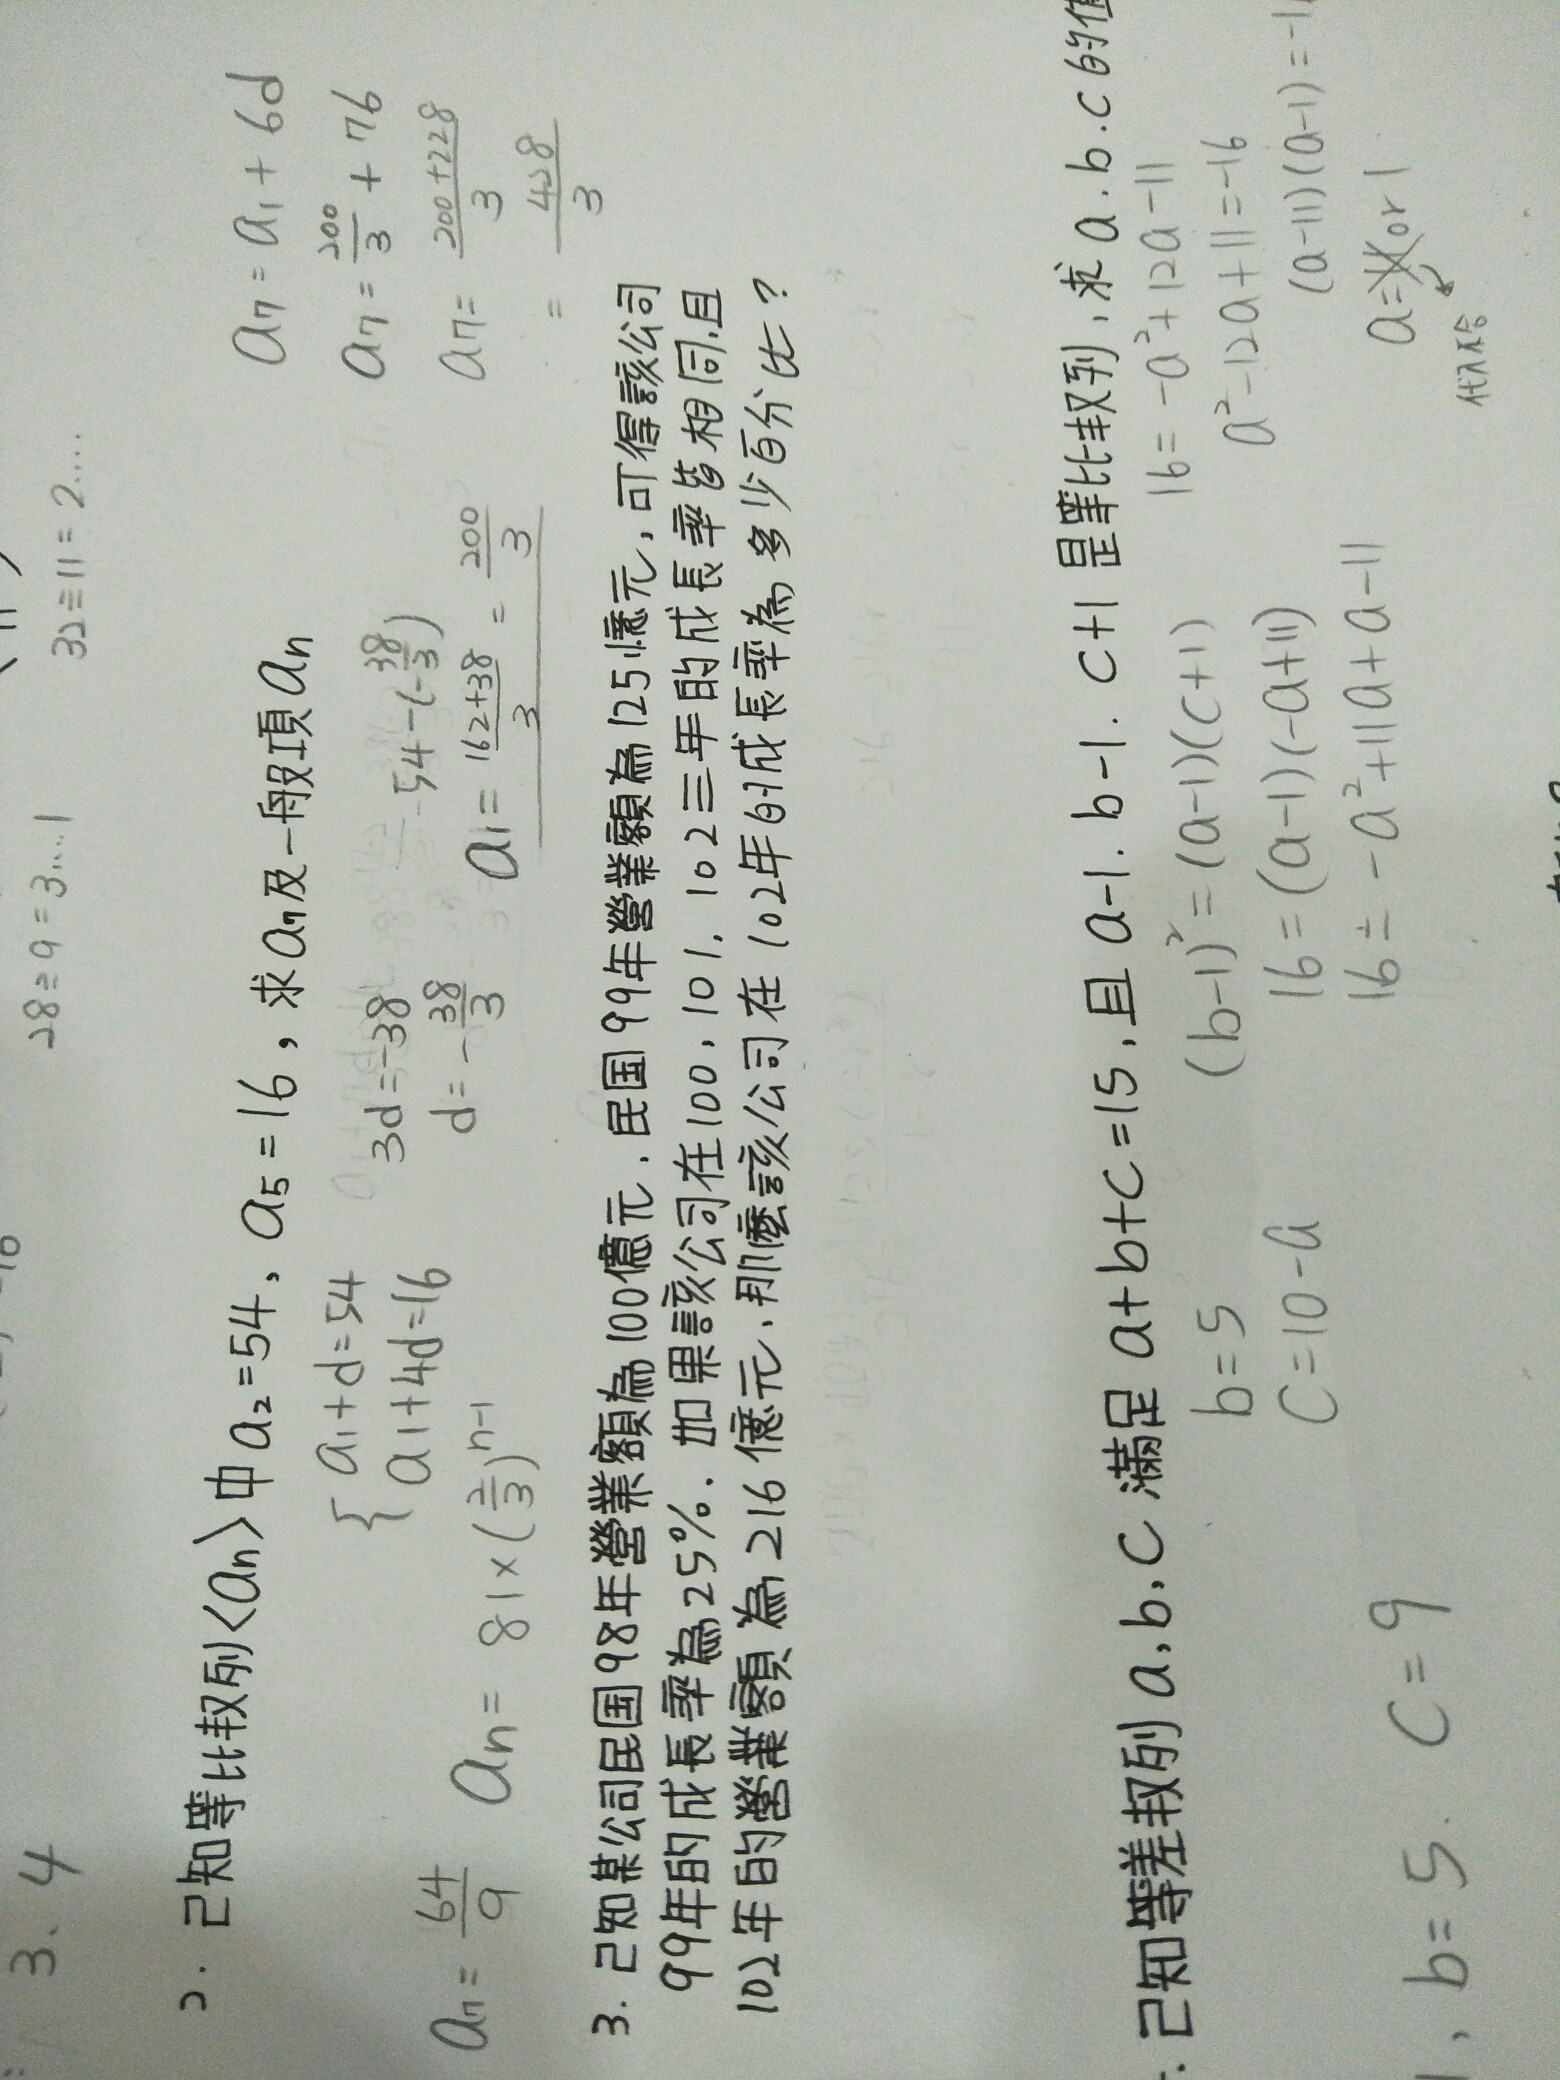 3、4
28÷9=3…1
32÷11=2…
2. 已知等比数列<an>中a2=54, a5=16, 求a7及一般項an
{ a1+d=54
a1+4d=16
3d=-38
d=-38/3
54-(-38/3)
a1=162+38/3=200/3
a7=a1+6d
a7=200/3+76
a7=200+228/3
=428/3
a7=64/9
an=81×(2/3)^n-1
3. 已知某公司民国98年營業額為100億元. 民国99年營業額為125億元, 可得該公司
99年的成長率為25%. 如果該公司在100, 101, 102三年的成長率皆相同,且
102年的營業額為216億元, 那麼該公司在102年的成長率為多少百分比?
. 已知等差数列a,b,c滿足a+b+c=15,且a-1. b-1. c+1是等比数列,求a.b.c的值
b=5
C=10-a
(b-1)²=(a-1)(c+1)
16=(a-1)(-a+11)
16=-a²+11a+a-11
16=-a²+12a-11
a²-12a+11=-16
(a-11)(a-1)=-1
a=11or1
代入不合
, b=5. C=9